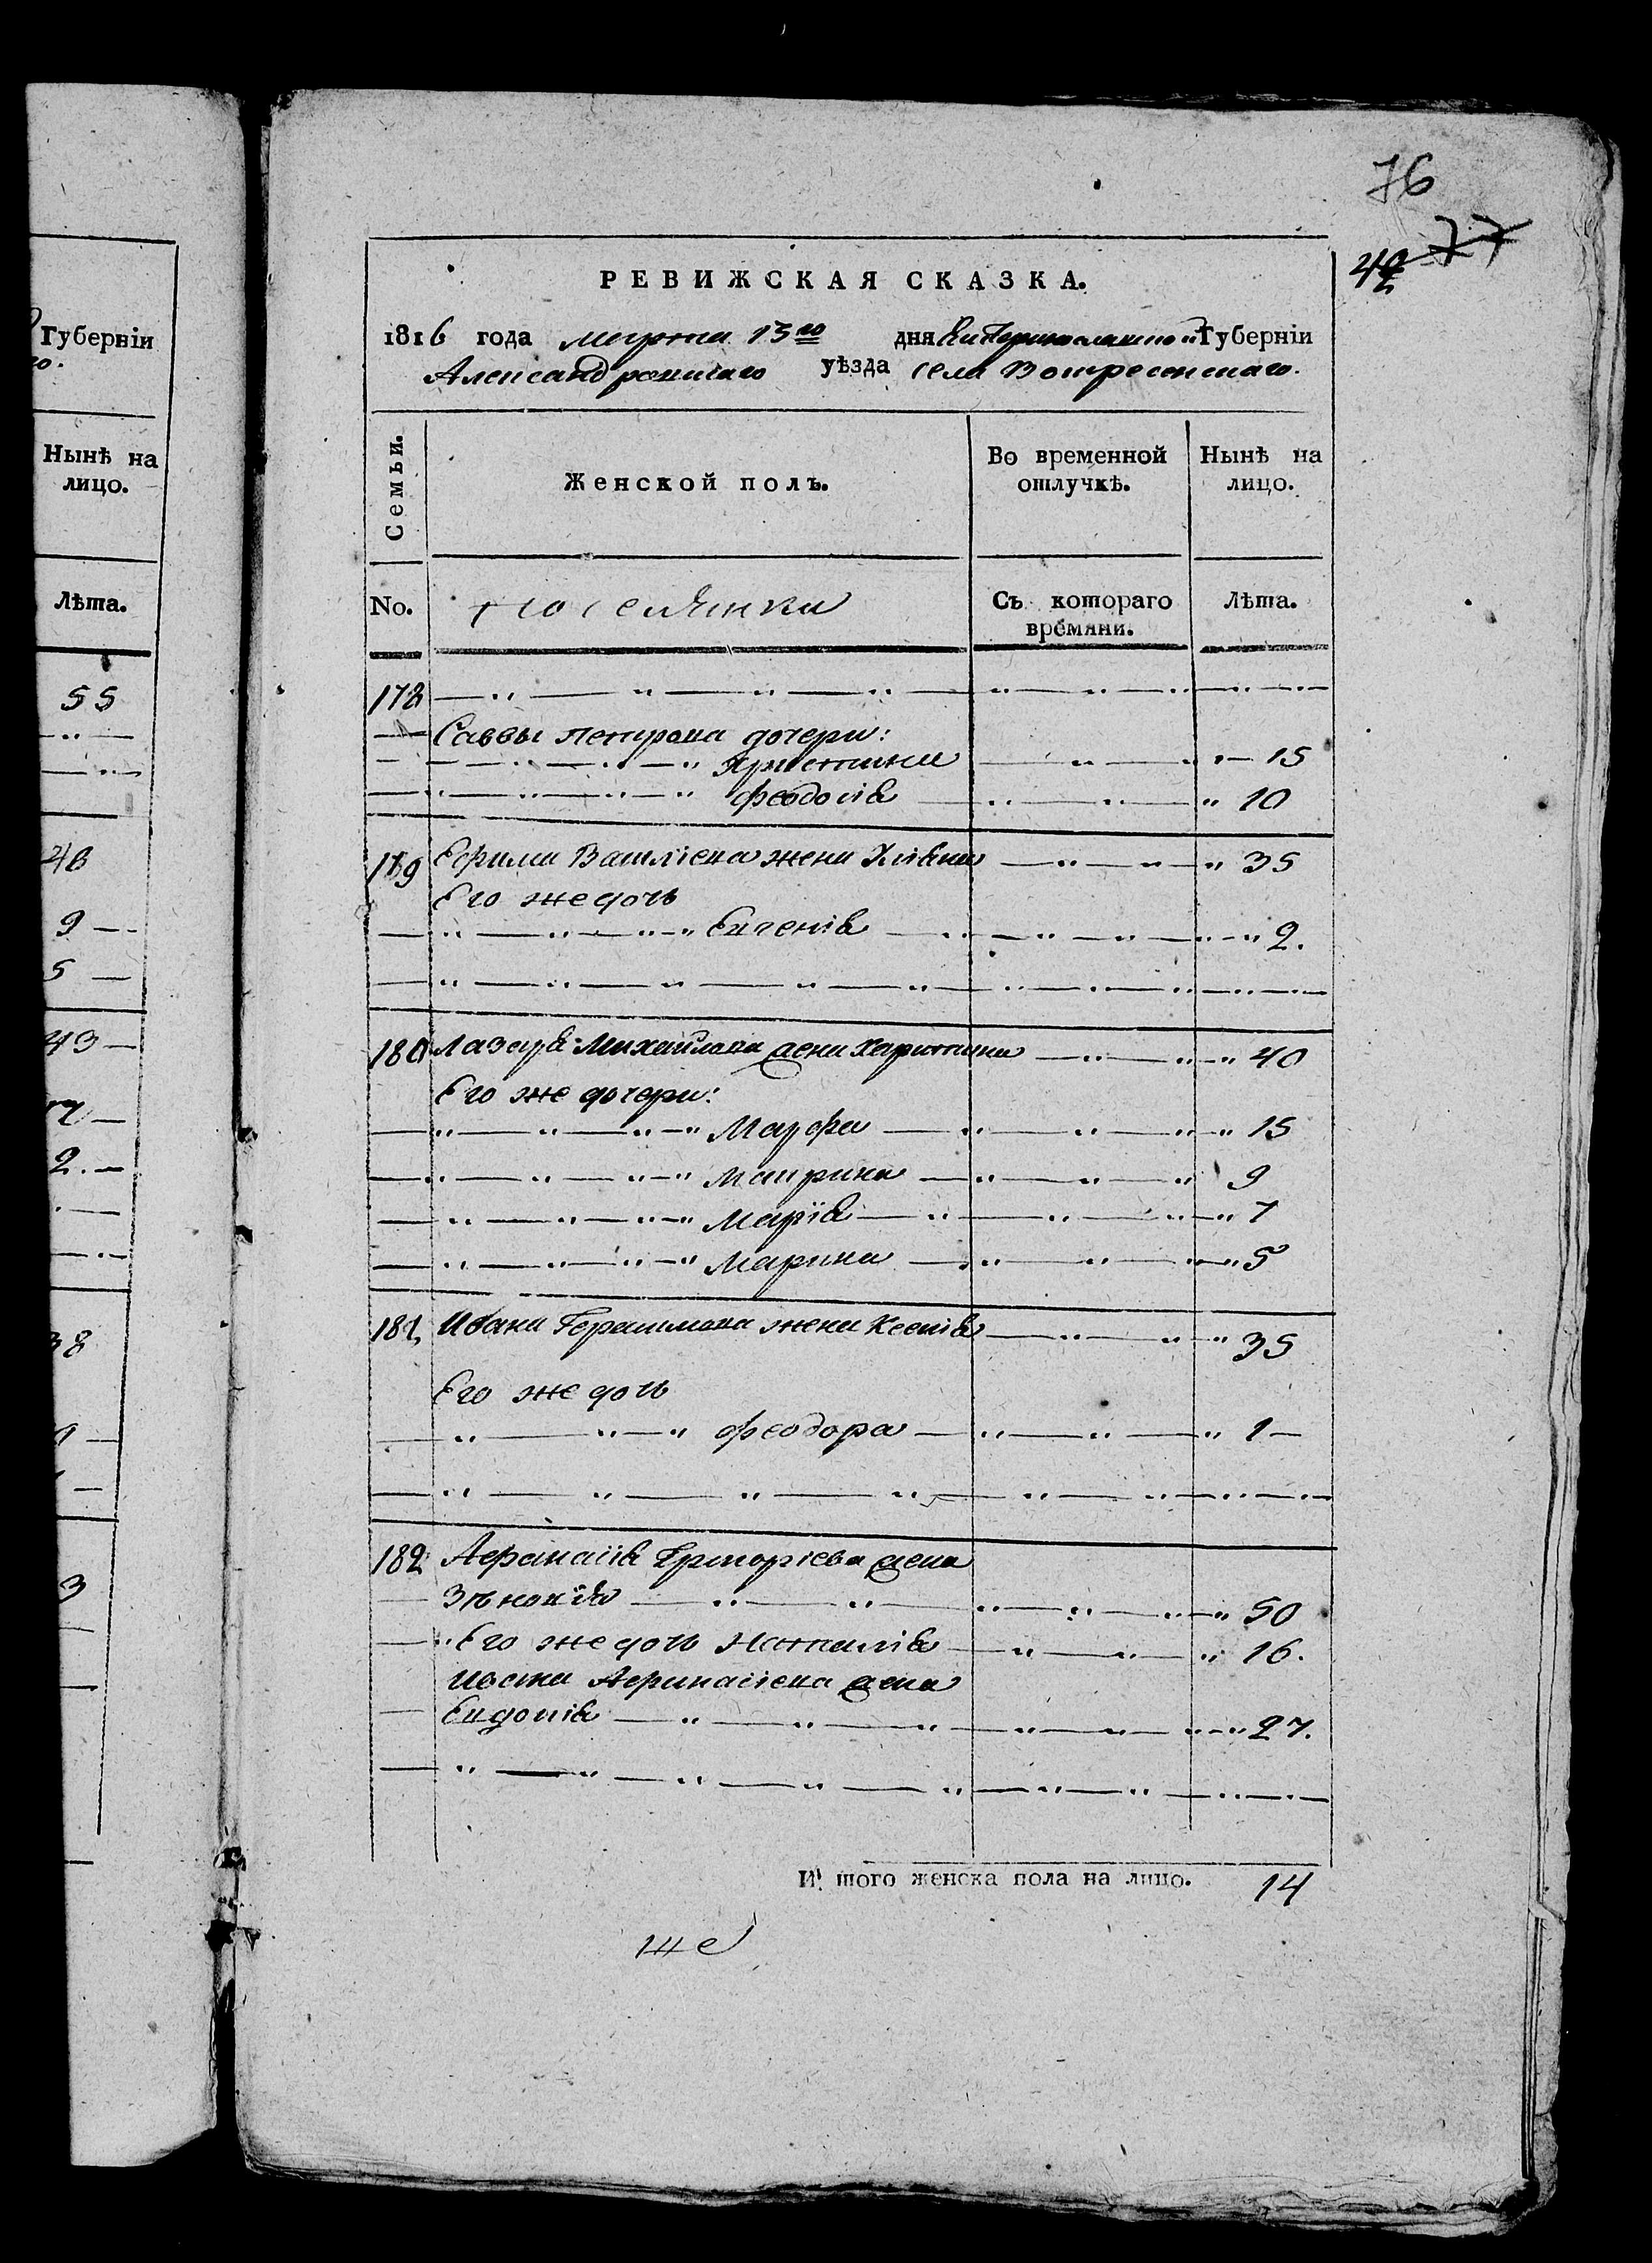 Губерніи
Нынѣ на
лицо.
Лѣта.
55
46
9
5
43
2.
38
3
76
77
РЕВИЖСКАЯ СКАЗКА.
1816 года марта 15го дня Екатеринославской Губерніи
Александровскаго уѣзда села Воскресенскаго.
Семьи.
Женской полъ.
Во временной
отлучкѣ.
Нынѣ на
лицо.
No.
поселянки
Съ котораго
времяни.
Лѣта.
178
Саввы Петрова дочери:
Христина 15
Феодосія 10
179 Ефима Василіева жена Улiяна 35
Его же дочь
Евгенія 2.
180 Лазаря Михайлова жена Харитина 40
Его же дочери:
Марфа 15
Матрина 9
Марія 7
Марина 5
181, Ивана Герасимова жена Ксенія 35
Его же дочь
Феодора 1
182 Афанасія Григоріева жена
Зѣновія 50
Его же дочь Наталія 16.
Ивана Афанасіева жена
Евдокія 27.
И' того женска пола на лицо. 14